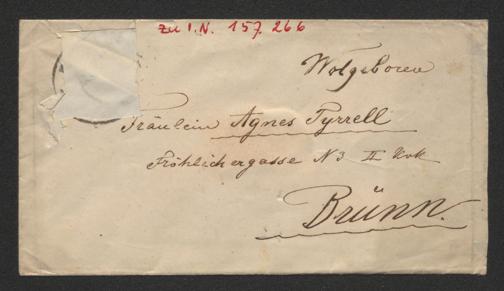 zu I.N. 157.266
Wolgeboren
Fräulein Agnes Tyrrell
Fröhlichergasse N3 II
Brünn.